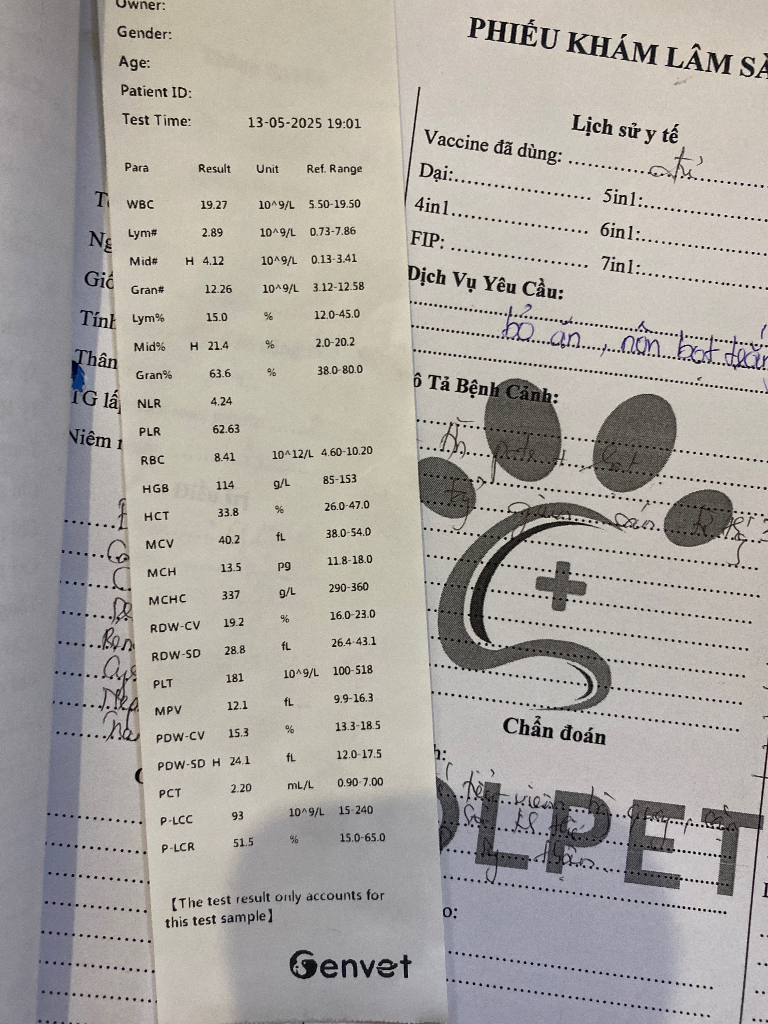 Owner:
Gender:
Age:
Patient ID:
Test Time: 13-05-2025 19:01
Para Result Unit Ref. Range
WBC 19.27 10^9/L 5.50-19.50
Lym# 2.89 10^9/L 0.73-7.86
Mid# H 4.12 10^9/L 0.13-3.41
Gran# 12.26 10^9/L 3.12-12.58
Lym% 15.0 % 12.0-45.0
Mid% H 21.4 % 2.0-20.2
Gran% 63.6 % 38.0-80.0
NLR 4.24
PLR 62.63
RBC 8.41 10^12/L 4.60-10.20
HGB 114 g/L 85-153
HCT 33.8 % 26.0-47.0
MCV 40.2 fL 38.0-54.0
MCH 13.5 pg 11.8-18.0
MCHC 337 g/L 290-360
RDW-CV 19.2 % 16.0-23.0
RDW-SD 28.8 fL 26.4-43.1
PLT 181 10^9/L 100-518
MPV 12.1 fL 9.9-16.3
PDW-CV 15.3 % 13.3-18.5
PDW-SD H 24.1 fL 12.0-17.5
PCT 2.20 mL/L 0.90-7.00
P-LCC 93 10^9/L 15-240
P-LCR 51.5 % 15.0-65.0
【The test result only accounts for
this test sample】
Genvet
PHIẾU KHÁM LÂM SÀ
Lịch sử y tế
Vaccine đã dùng:
Dại: 5in1:
4in1 6in1:
FIP: 7in1:
Dịch Vụ Yêu Cầu:
bỏ ăn, nôn bọt
ô Tả Bệnh Cảnh:
Chẩn đoán
LPET
Ng
Giố
Tính
Thân
TG lấ
Niêm